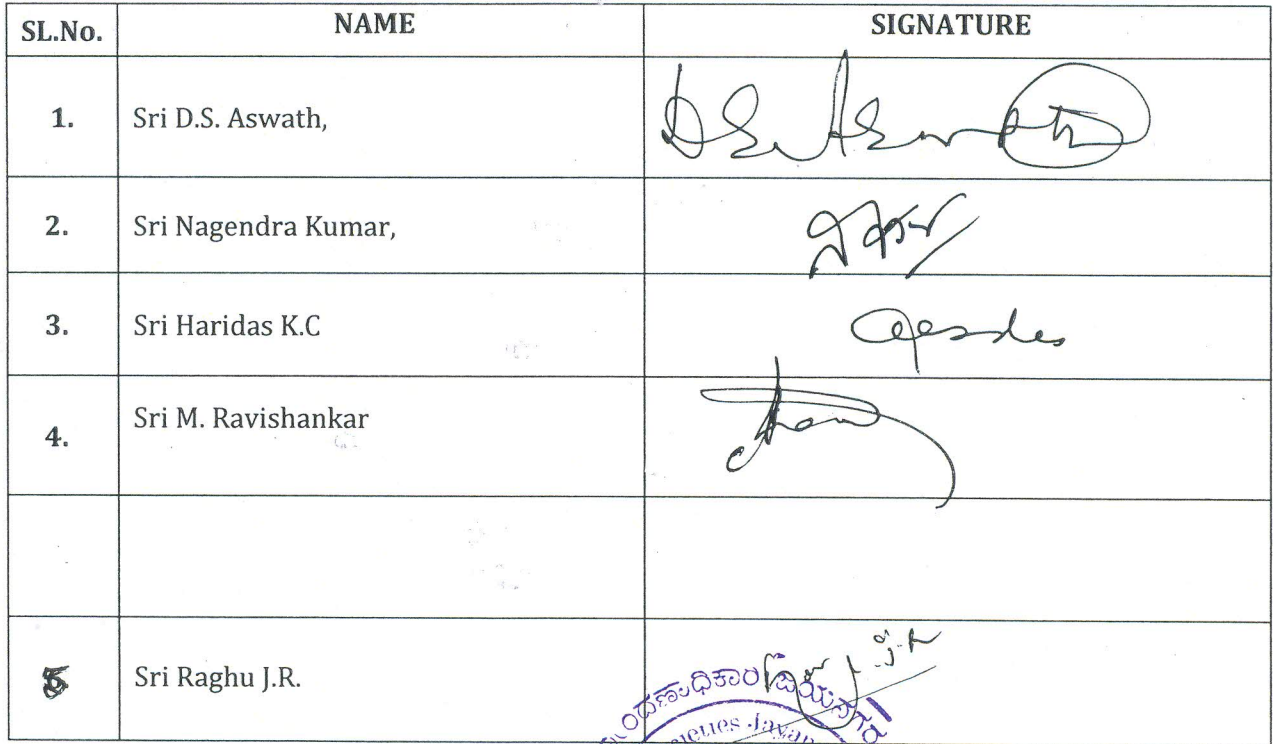 SL.No. NAME SIGNATURE
1. Sri D.S. Aswath, D.S. Aswath
2. Sri Nagendra Kumar,
3. Sri Haridas K.C
4. Sri M. Ravishankar
5 Sri Raghu J.R. J.R